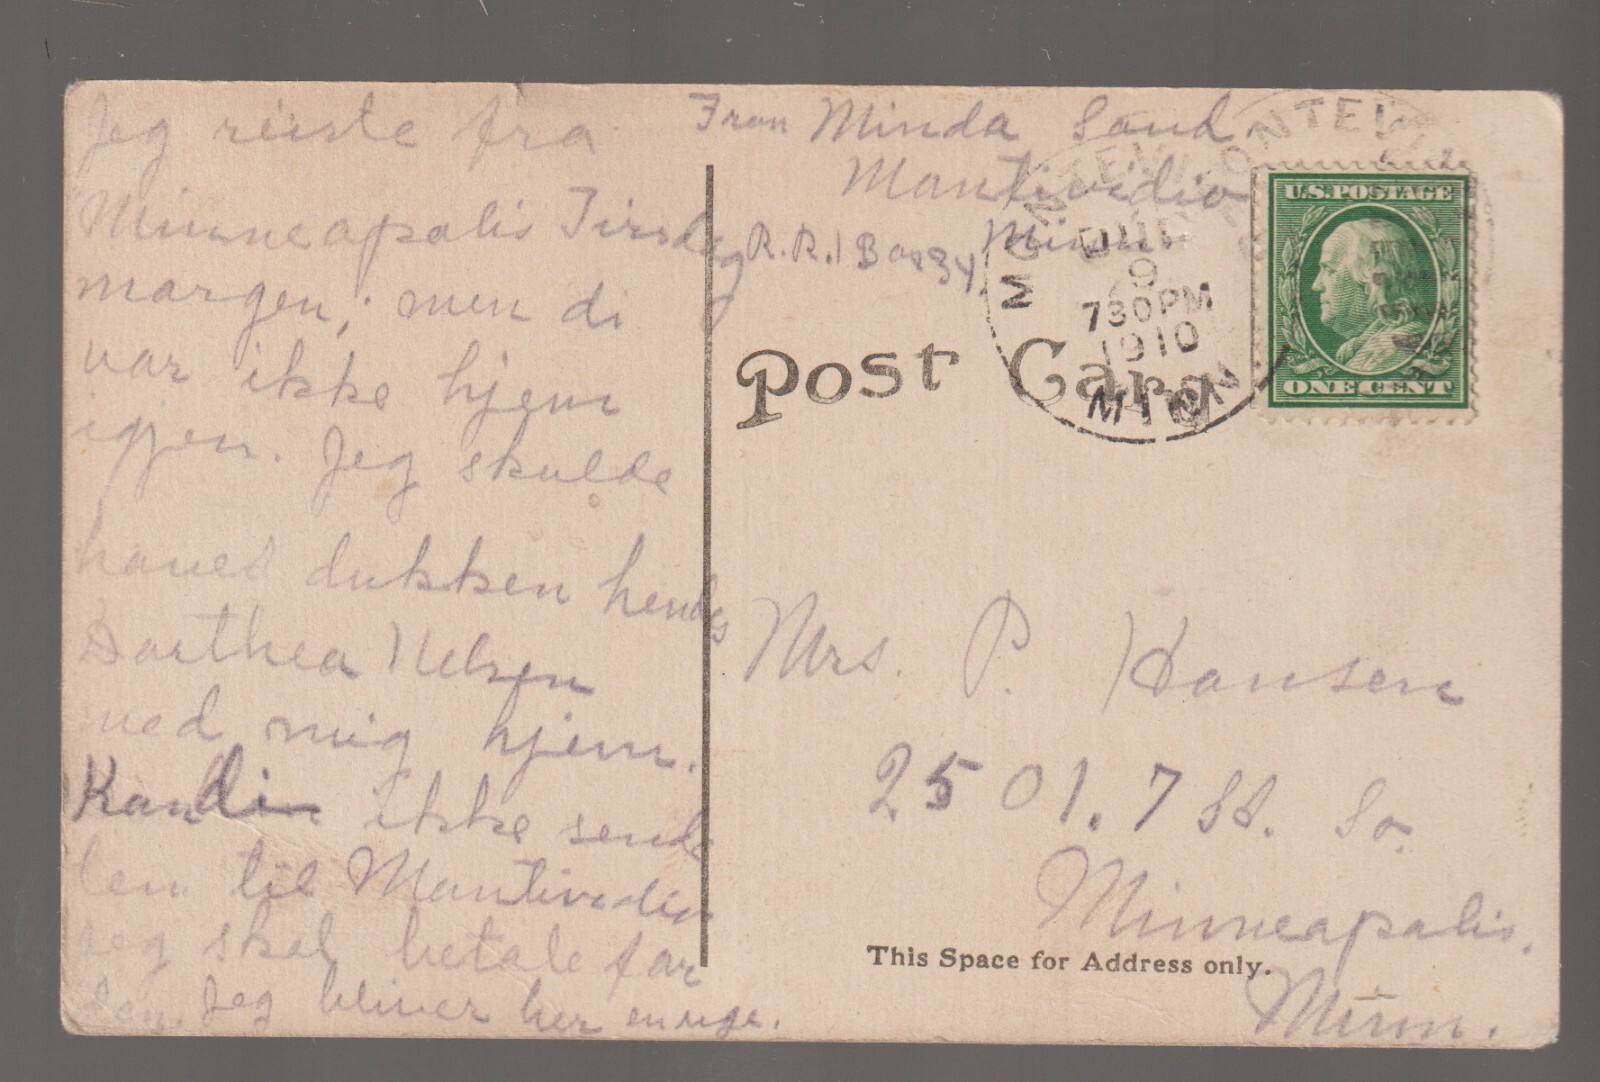 Jeg reiste fra
Minneapolis Tirsdag
margen; men di
var ikke hjem
igjen. Jeg skulde
haved dukken hendes
Dorthea Nelsen
med mig hjem.
Kan di ikke sende
len til Mantividio
Jeg skal betale far
den. Jeg bliver her en uge.
From Minda Sand
Mantividio
Minn.
R.R.1 Box 34
MONTEVI
9
730PM
1910
MINN.
U.S. POSTAGE
ONE CENT
Post Card
Mrs. P. Hansen
2501. 7 St. So.
Minneapolis.
Minn.
This Space for Address only.